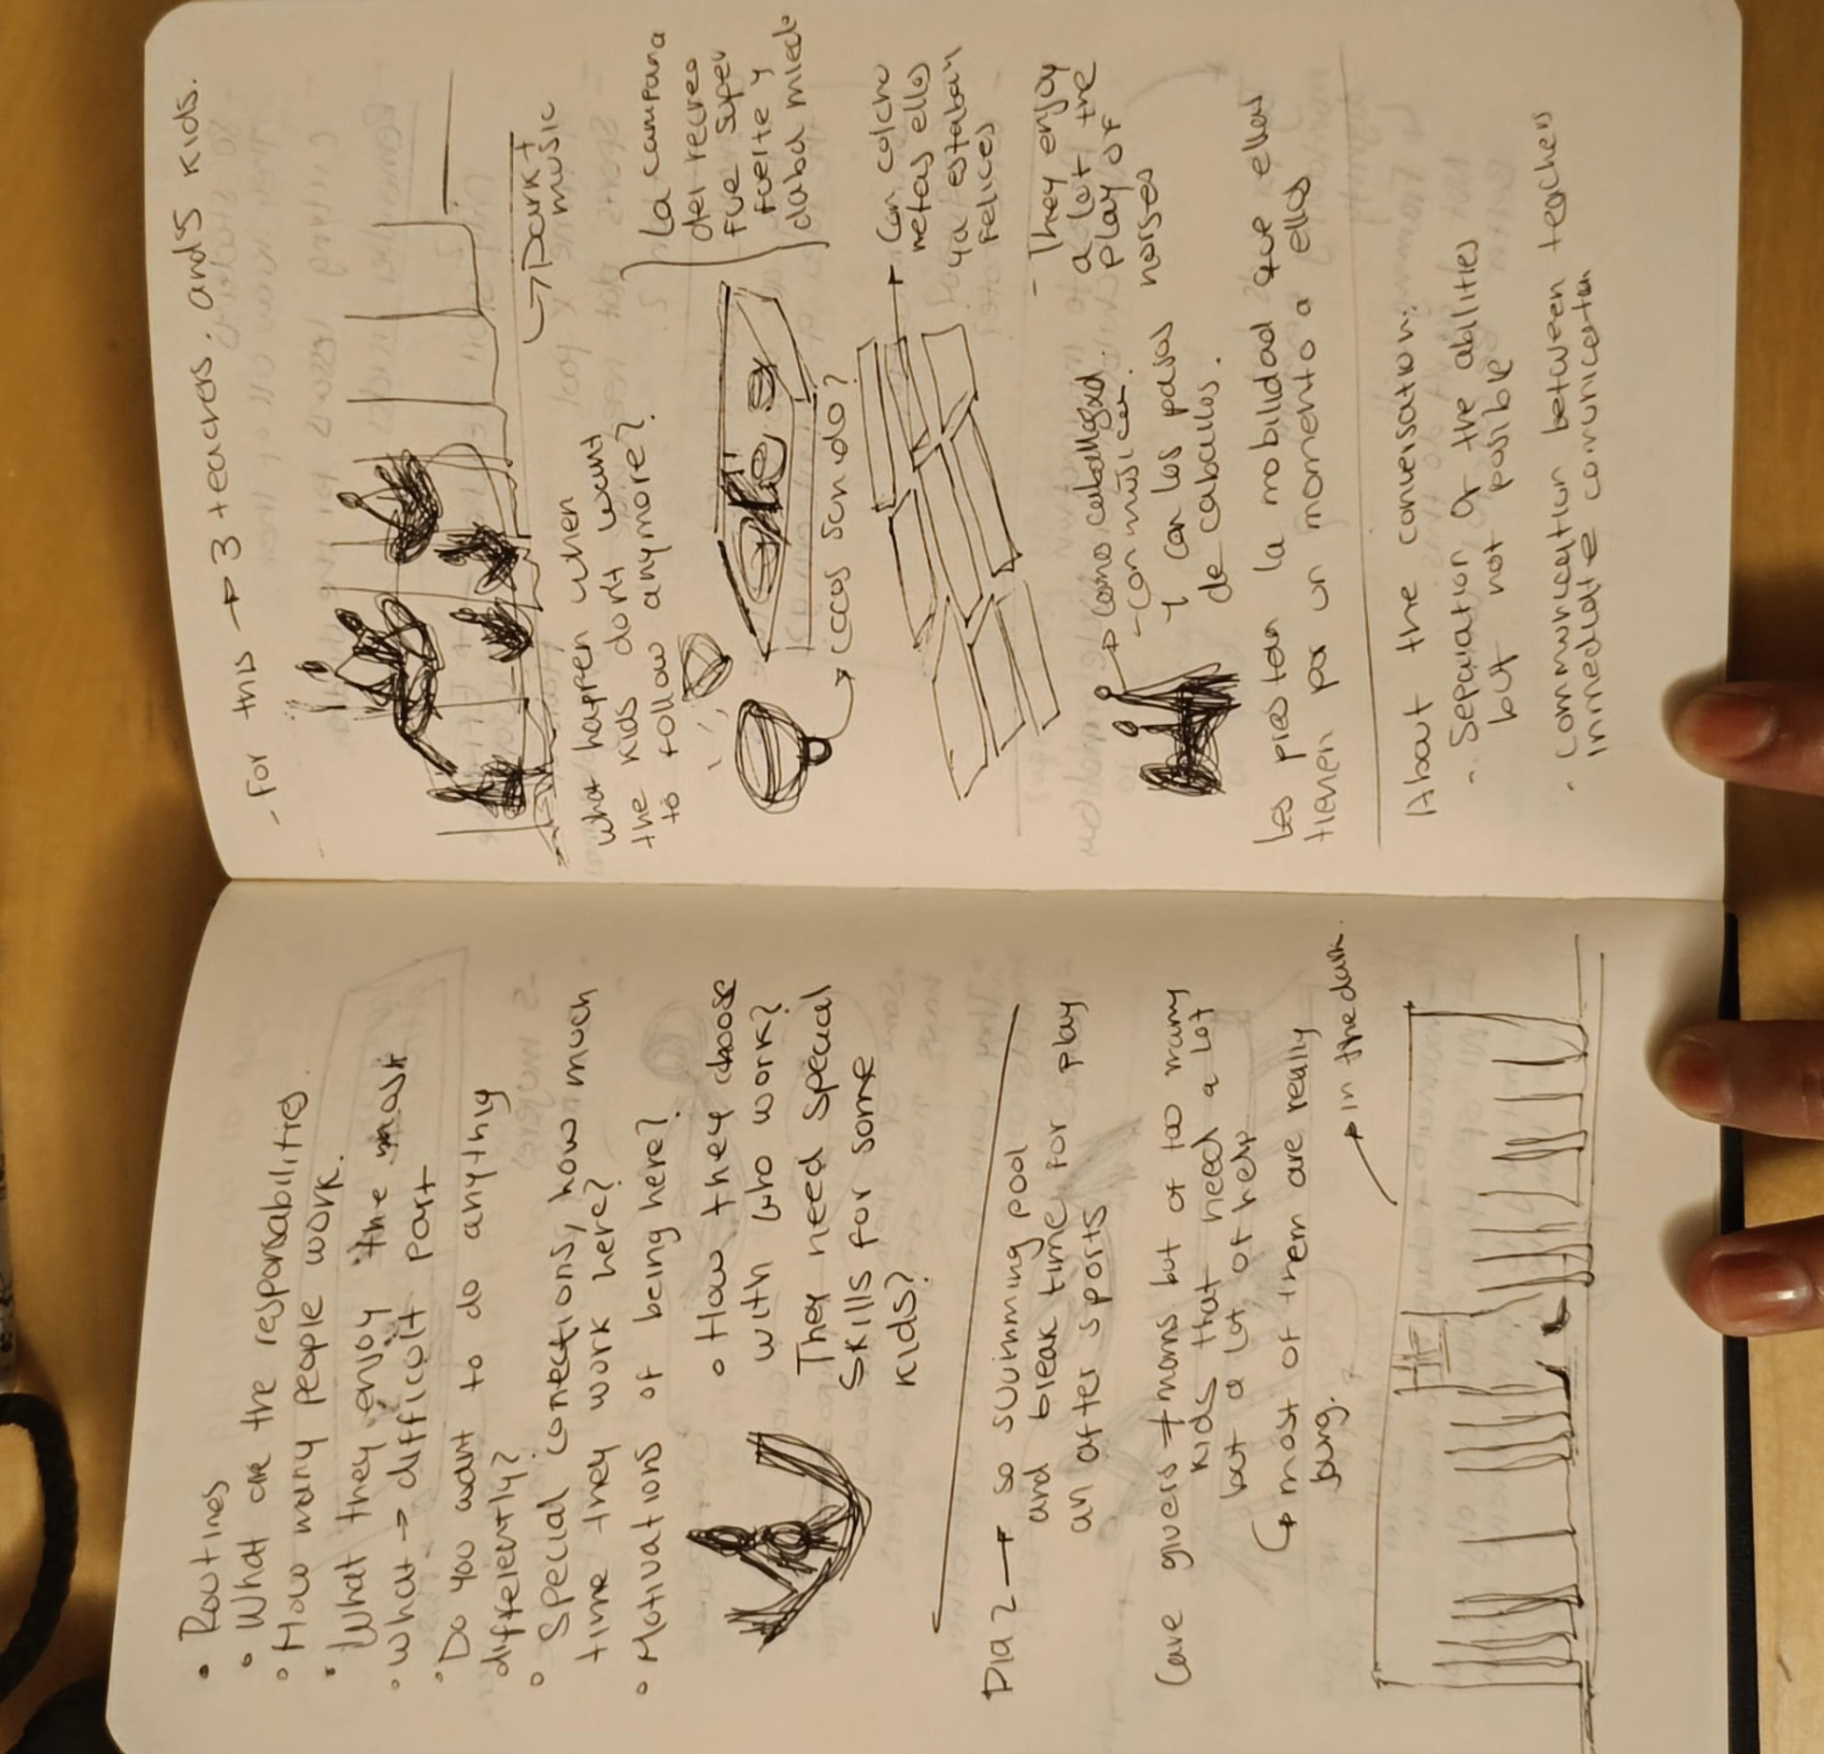 • Routines
• What are the responsabilities
• How many people work.
• What they enjoy the most
• What → difficult part
• Do you want to do anything
differently?
• Special conections, how much
time they work here?
• Motivations of being here?
• How they choose
with who work?
They need special
skills for some
kids?
Dia 2 → so swimming pool
and break time for play
an after sports
Care givers + mans but of too many
kids that need a lot
but a lot of help
↳ most of them are really
in the dark.
- For this → 3 teachers. and 5 kids.
↳ Dark +
music
what happen when
the kids don't want
to follow anymore?
La campana
del recreo
fue super
fuerte y
daba miedo
sonido?
Con colcho
netas ellos
ya estaban
felices
- They enjoy
a lot the
play of
noises
→ como
- con música.
y con los pasos
de caballos.
Les prestan la mobilidad que ellos
tienen por un momento a ellos
About the conversation:
- Separation of the abilities
but not posible
- communication between teachers